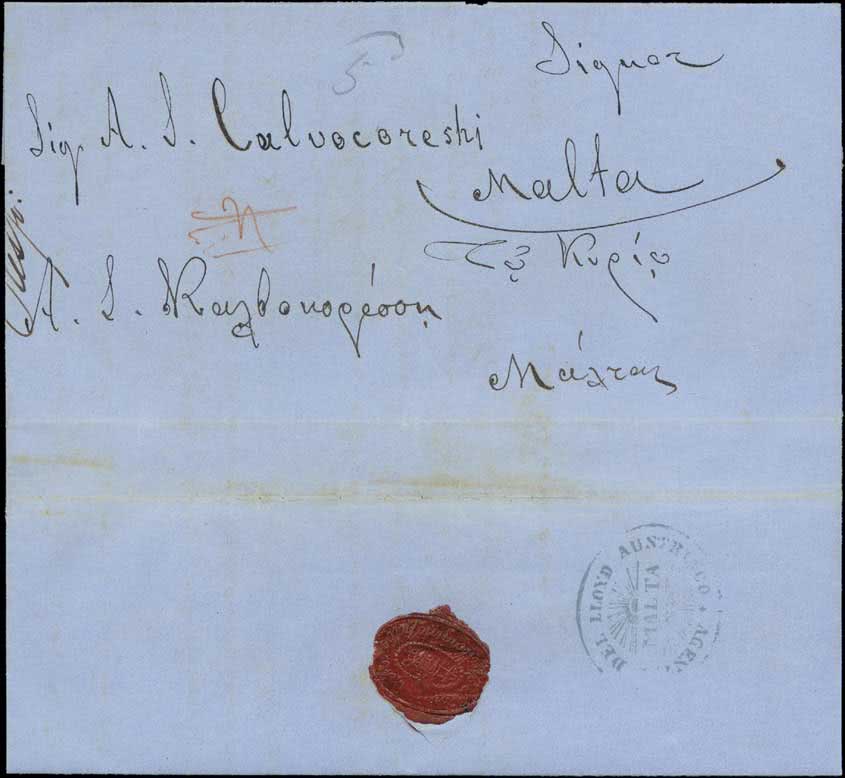 Signor
Sig. A. S. Calvocoreshi
Malta
Τῷ Κυρίῳ
Α. Σ. Καλβοκορέσση
Μάλταν
DEL LLOYD AUSTRIACO • AGEN
MALTA